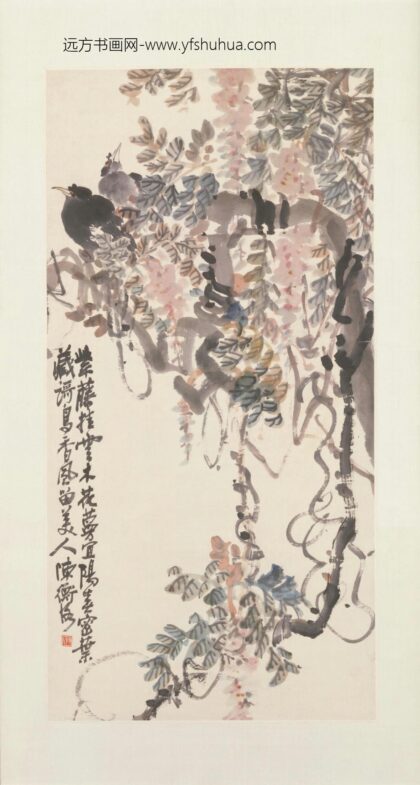 远方书画网-www.yfshuhua.com
紫藤挂云木花蔓宜阳春密叶
藏謌鳥香風留美人陳衡恪